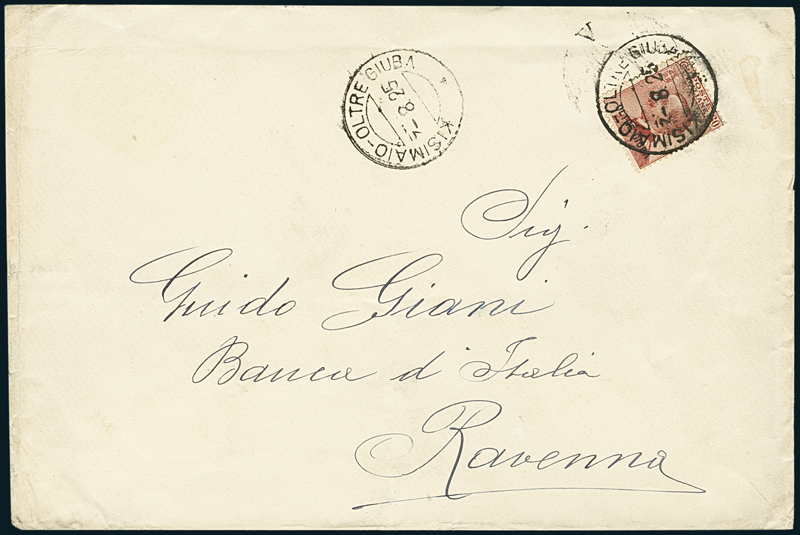 KISIMAIO-OLTRE GIUBA
8 25
KISIMAIO-OLTRE GIUBA
8 25
A
Sig.
Guido Giani
Banca d'Italia
Ravenna